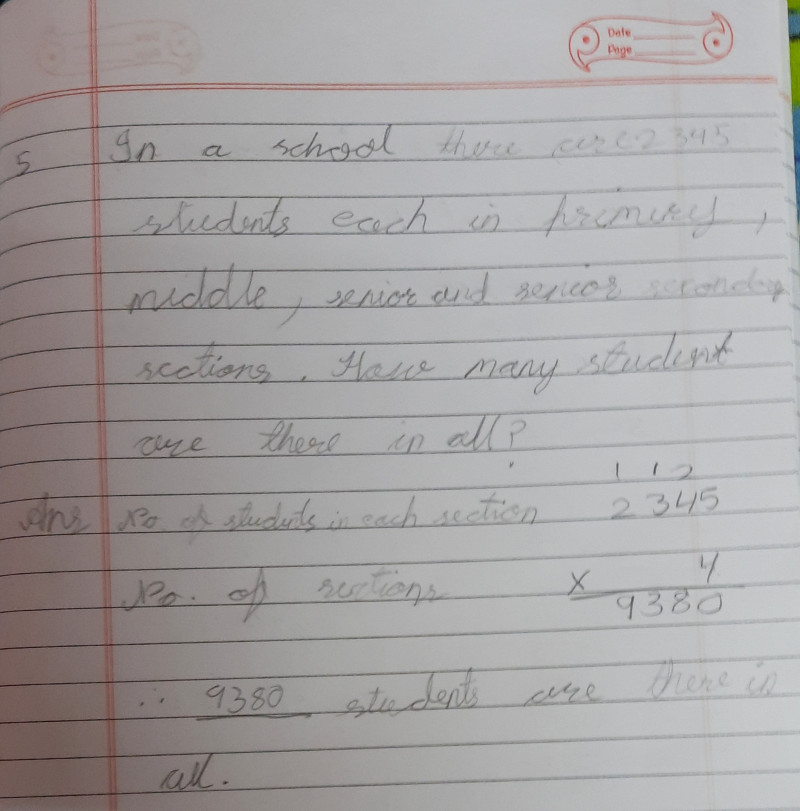 Date
Page
5 In a school there are 2345
students each in primary,
middle, senior and senior secondary
sections. How many student
are there in all?
1 1 2
Ans No. of students in each section 2345
No. of sections × 4
9380
∴ 9380 students are there in
all.